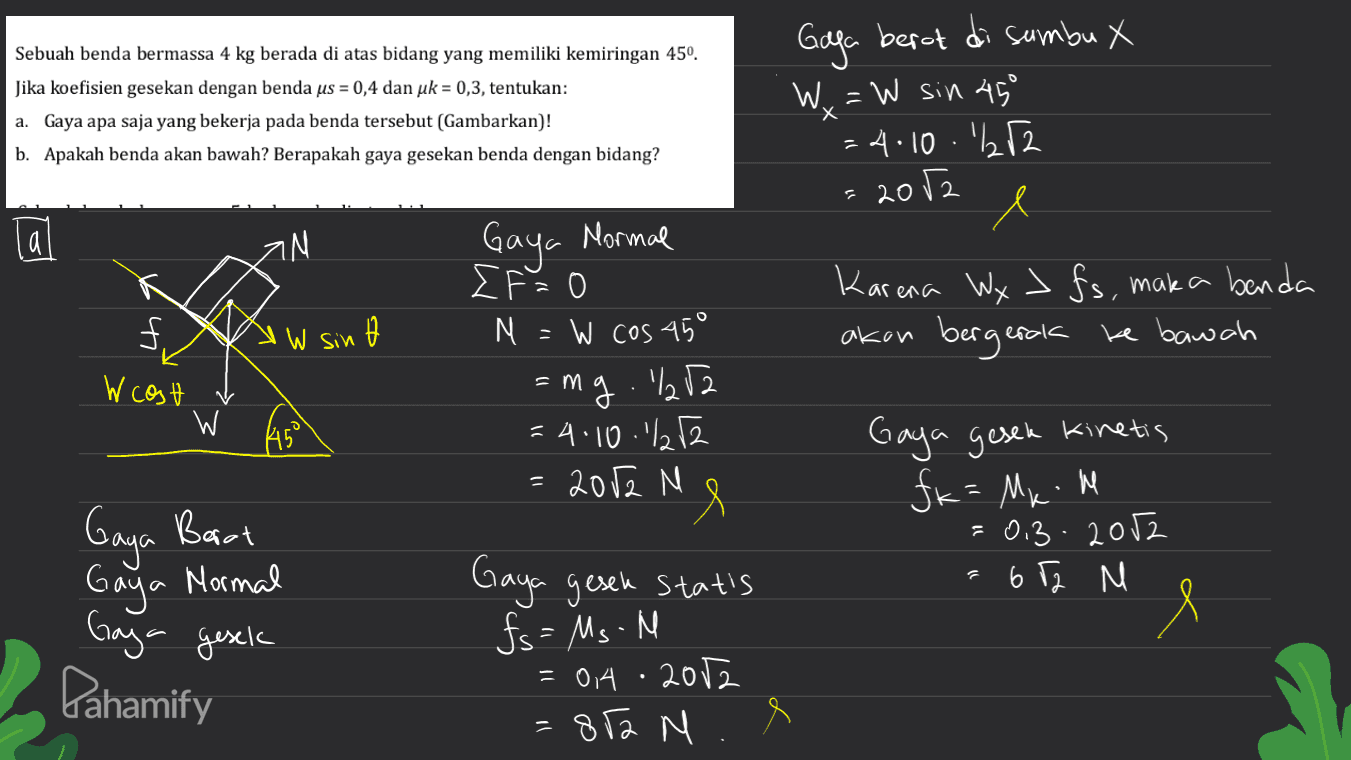 Sebuah benda bermassa 4 kg berada di atas bidang yang memiliki kemiringan 45⁰.
Jika koefisien gesekan dengan benda μs = 0,4 dan μk = 0,3, tentukan:
a. Gaya apa saja yang bekerja pada benda tersebut (Gambarkan)!
b. Apakah benda akan bawah? Berapakah gaya gesekan benda dengan bidang?
a
N
f
W sin θ
W cos θ
W
45°
Gaya Berat
Gaya Normal
Gaya gesek
Gaya Normal
ΣF = 0
N = W cos 45°
= mg . 1/2 √2
= 4.10 . 1/2 √2
= 20√2 N
Gaya gesek statis
fs = Ms . N
= 0,4 . 20√2
= 8√2 N.
Gaya berat di sumbu X
Wx = W sin 45°
= 4.10 . 1/2 √2
= 20√2
Karena Wx > fs, maka benda
akan bergerak ke bawah
Gaya gesek kinetis
fk = Mk . N
= 0,3 . 20√2
= 6√2 N
Pahamify